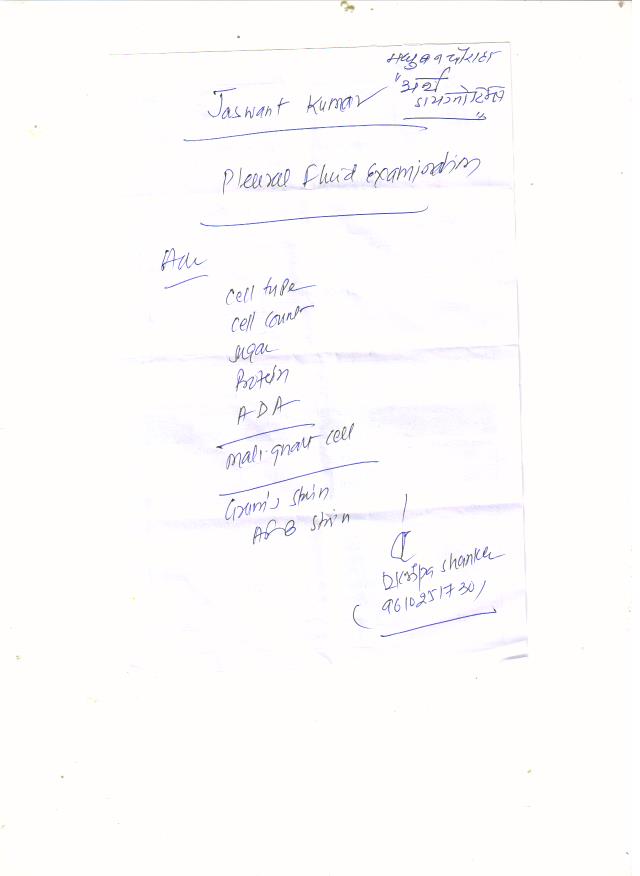 मधुबन चौराहा
Jaswant Kumar
"अर्थ
डायग्नोस्टिक्स"
Pleural Fluid Examination
Adv
Cell type
Cell count
Sugar
Protein
ADA
Malignant cell
Gram's stain
AFB stain
Dr Kripa Shanker
(9610251730)